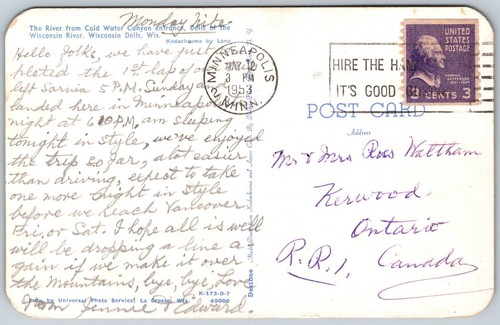 Monday Nite.
The River from Cold Water Canyon entrance, Dells of the
Wisconsin River, Wisconsin Dells, Wis.
Kodachrome by Lane
Hello folks, we have just
pleted the 1st lap of
left Sarnia 5 P.M. Sunday
landed here in Minneapol
night at 6 P.M, am sleeping
tonight in style, we've enjoyed
the trip so far, alot easier
than driving, expect to take
one more night in style
before we reach Vancouver
Fri, or Sat. I hope all is well
will be dropping a line a
gain if we make it over
the Mountains, bye, bye, Love
from Jennie & Edward.
by Universal Photo Service, La Crosse, Wis.
K-173-D-7
45000
MINNEAPOLIS
MINN.
3 PM
1953
HIRE THE HAN
IT'S GOOD
UNITED
STATES
POSTAGE
CENTS 3
POST CARD
Address
Mr & Mrs Russ Wattham
Kerwood
Ontario
R.R.1, Canada